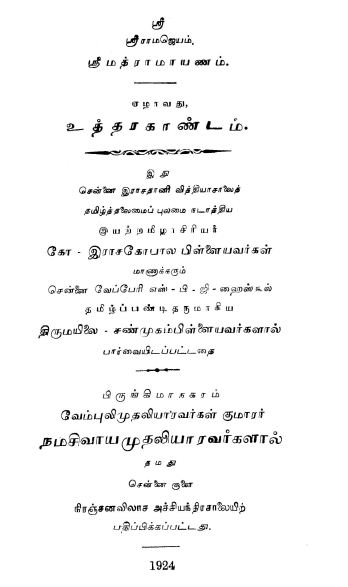 ஸ்ரீ
ஸ்ரீராமஜெயம்.
ஸ்ரீமத்ராமாயணம்.
ஏழாவது,
உத்தரகாண்டம்.
இது
சென்னை இராசதானி வித்தியாசாலைத்
தமிழ்த்தலைமைப் புலமை நடாத்திய
இயற்றமிழாசிரியர்
கோ - இராசகோபால பிள்ளையவர்கள்
மாணாக்கரும்
சென்னை வேப்பேரி எஸ் - பி - ஜி - ஹைஸ்கூல்
தமிழ்ப்பண்டிதருமாகிய
திருமயிலை - சண்முகம்பிள்ளையவர்களால்
பார்வையிடப்பட்டதை
பிருங்கிமாநகரம்
வேம்புலிமுதலியாரவர்கள் குமாரர்
நமசிவாயமுதலியாரவர்களால்
தமது
சென்னை சூளை
நிரஞ்சனவிலாச அச்சியந்திரசாலையிற்
பதிப்பிக்கப்பட்டது.
1924